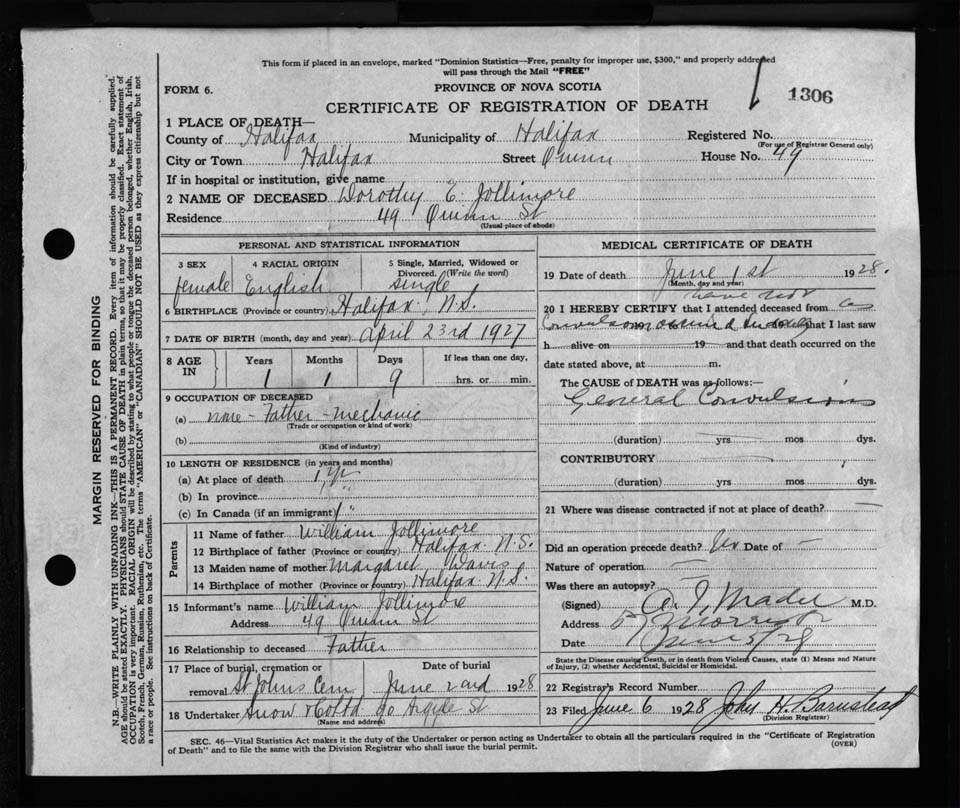 This form if placed in an envelope, marked "Dominion Statistics—Free, penalty for improper use, $300," and properly addressed
will pass through the Mail "FREE"
FORM 6.
PROVINCE OF NOVA SCOTIA
CERTIFICATE OF REGISTRATION OF DEATH
1306
1 PLACE OF DEATH—
County of Halifax Municipality of Halifax Registered No.
(For use of Registrar General only)
City or Town Halifax Street Quinn House No. 49
If in hospital or institution, give name
2 NAME OF DECEASED Dorothy E. Jollimore
Residence 49 Quinn St
(Usual place of abode)
PERSONAL AND STATISTICAL INFORMATION
3 SEX 4 RACIAL ORIGIN 5 Single, Married, Widowed or Divorced. (Write the word)
female English single
6 BIRTHPLACE (Province or country) Halifax, N.S.
7 DATE OF BIRTH (month, day and year) April 23rd 1927
8 AGE IN Years Months Days If less than one day,
1 1 9 hrs. or min.
9 OCCUPATION OF DECEASED
(a) none - Father - mechanic
(Trade or occupation or kind of work)
(b)
(Kind of industry)
10 LENGTH OF RESIDENCE (in years and months)
(a) At place of death 1 yr
(b) In province " "
(c) In Canada (if an immigrant) 1 "
Parents
11 Name of father William Jollimore
12 Birthplace of father (Province or country) Halifax N.S.
13 Maiden name of mother Margaret Davis
14 Birthplace of mother (Province or country) Halifax N.S.
15 Informant's name William Jollimore
Address 49 Quinn St
16 Relationship to deceased Father
17 Place of burial, cremation or removal St Johns Cem Date of burial June 2nd 1928
18 Undertaker Snow & Co Ltd 90 Argyle St
(Name and address)
MEDICAL CERTIFICATE OF DEATH
19 Date of death June 1st 1928.
(Month, day and year)
have not
20 I HEREBY CERTIFY that I attended deceased from as
19 to 19 that I last saw
h alive on 19 and that death occurred on the
date stated above, at m.
The CAUSE of DEATH was as follows:—
General Convulsions
(duration) yrs mos dys.
CONTRIBUTORY
(duration) yrs. mos. dys.
21 Where was disease contracted if not at place of death? —
Did an operation precede death? Date of —
Nature of operation —
Was there an autopsy?
(Signed) Mader M.D.
Address 57 Morris St
Date
State the Disease causing Death, or in death from Violent Causes, state (1) Means and Nature
of Injury, (2) whether Accidental, Suicidal or Homicidal.
22 Registrar's Record Number
23 Filed June 6 1928 John H. Barnstead
(Division Registrar)
SEC. 46—Vital Statistics Act makes it the duty of the Undertaker or person acting as Undertaker to obtain all the particulars required in the "Certificate of Registration
of Death" and to file the same with the Division Registrar who shall issue the burial permit.
(OVER)
MARGIN RESERVED FOR BINDING
N.B.—WRITE PLAINLY WITH UNFADING INK—THIS IS A PERMANENT RECORD. Every item of information should be carefully supplied.
AGE should be stated EXACTLY. PHYSICIANS should STATE CAUSE OF DEATH in plain terms, so that it may be properly classified. Exact statement of
OCCUPATION is very important. RACIAL ORIGIN will be described by stating to what people or tongue the deceased person belonged, whether English, Irish,
Scotch, French, German, Russian, Ruthenian, etc. The terms "AMERICAN" or "CANADIAN" SHOULD NOT BE USED as they express citizenship but not
a race or people. See instructions on back of Certificate.